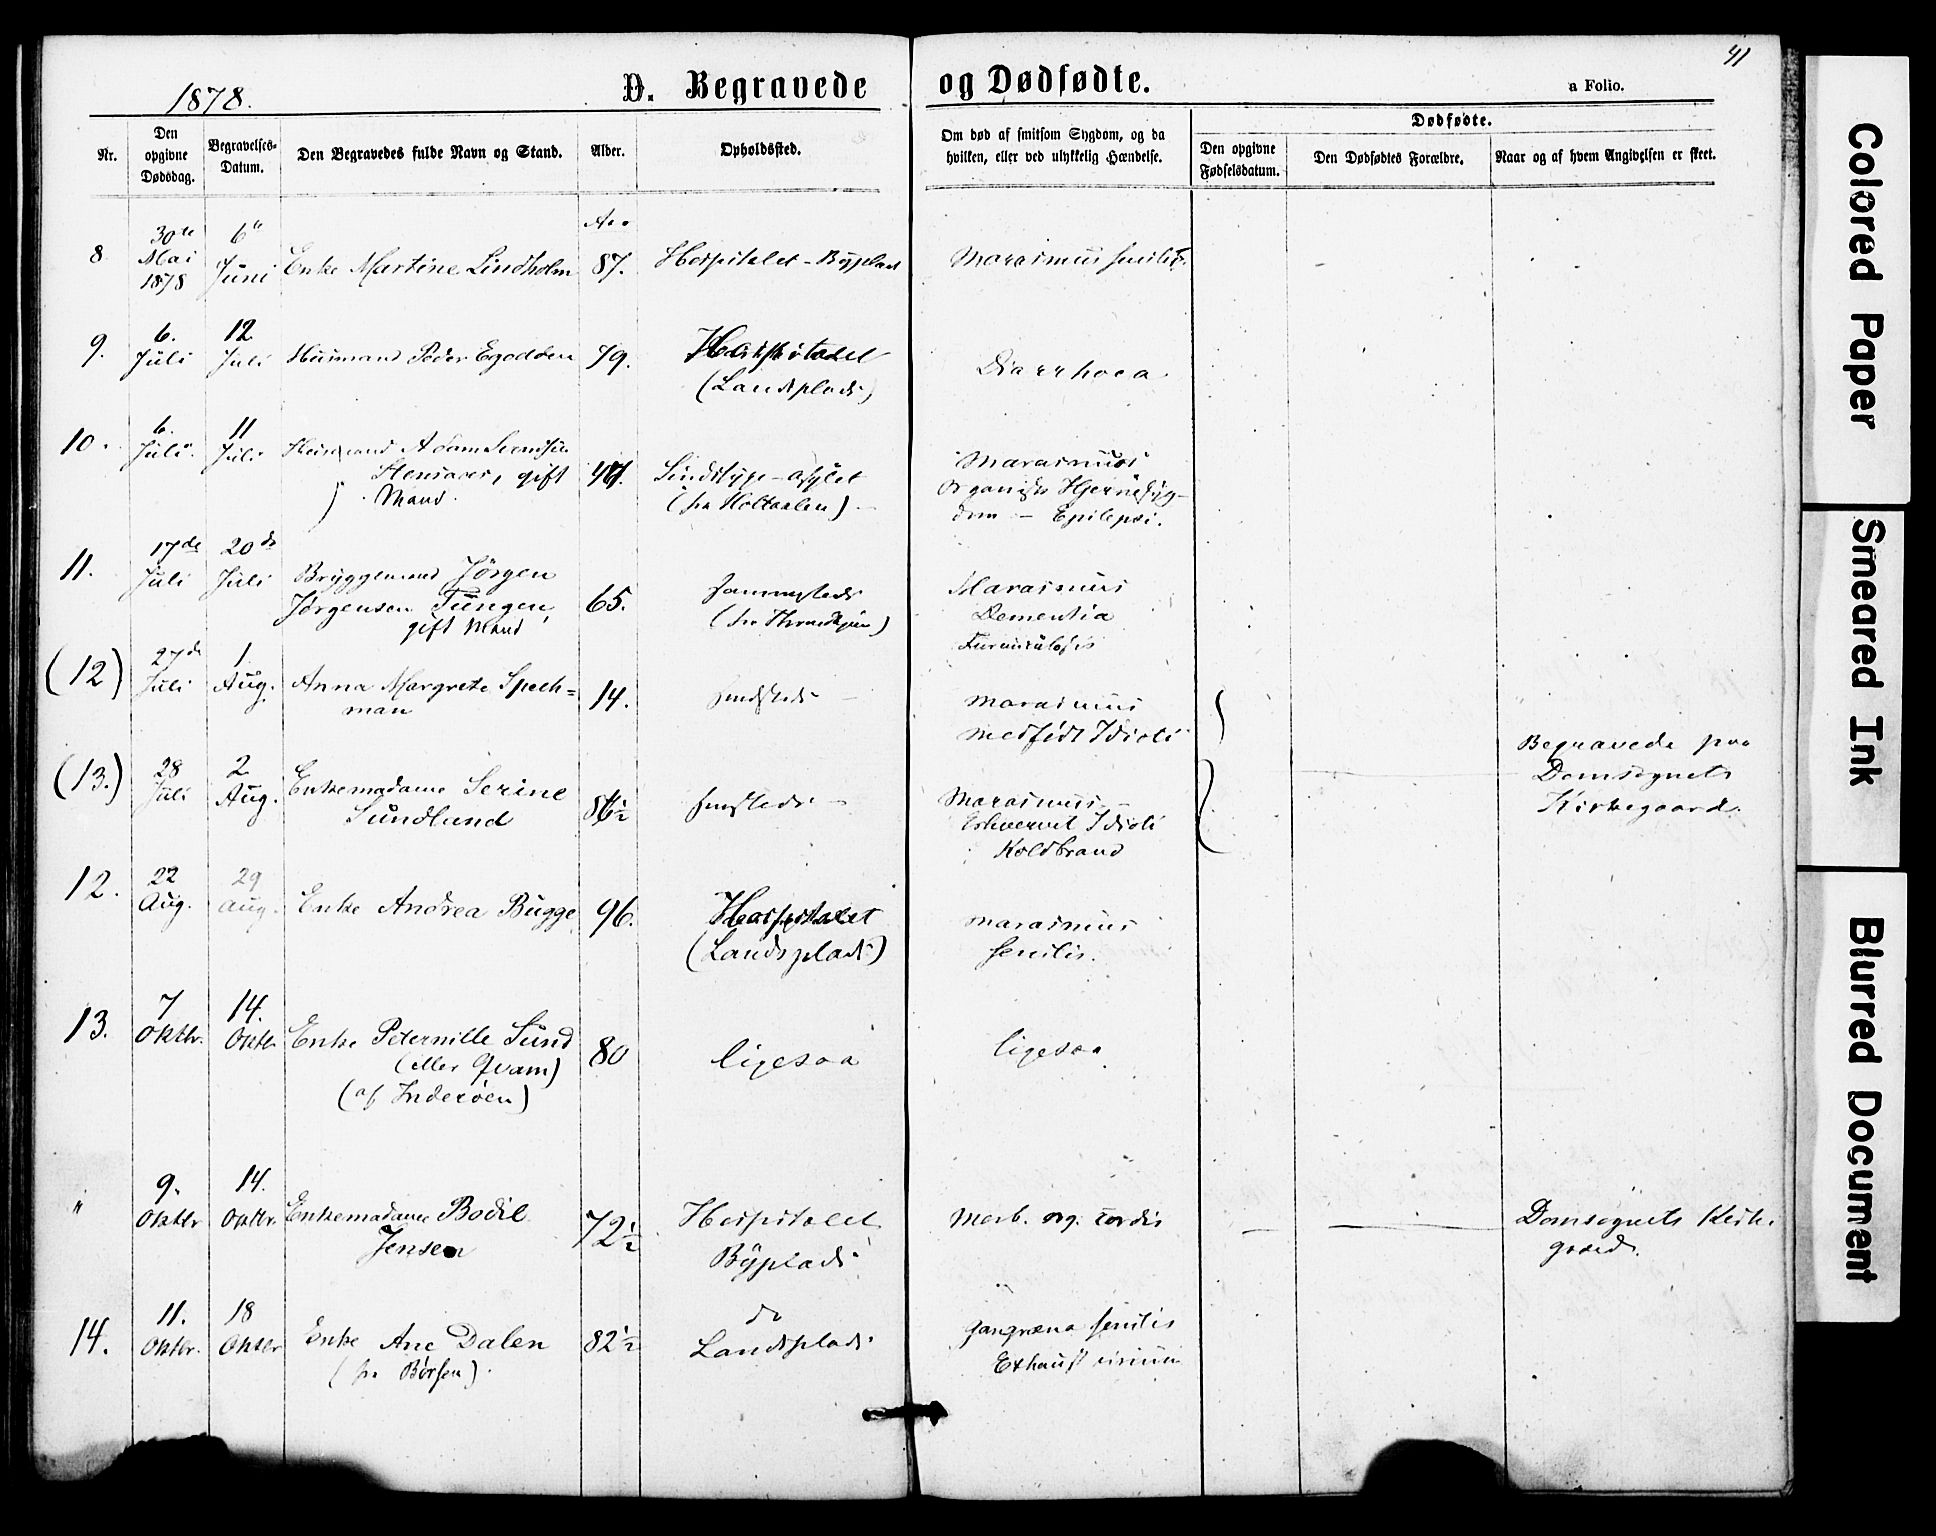 41
1878.
D. Begravede og Dødfødte.
a Folio.
Nr.
Den opgivne Dødsdag.
Begravelses-Datum.
Den Begravedes fulde Navn og Stand.
Alder.
Opholdssted.
Om død af smitsom Sygdom, og da hvilken, eller ved ulykkelig Hændelse.
Dødfødte.
Den opgivne Fødselsdatum.
Den Dødfødtes Forældre.
Naar og af hvem Angivelsen er skeet.
8 30te Mai 1878 6te Juni Enke Martine Lindholm 87. Hospitalet - Byplads Marasmus senilis.
9. 6. Juli 12 Juli Huusmand Peder 79. Hospitalet
(Landsplads) Diarrhoea
10. 6. Juli 11 Juli Huusmand Adam
gift
Mand. Sindssyge-Asylet
(fra Holtaalen) Marasmus
Organisk Hjernesyg-
dom - Epilepsi.
11. 17de Juli 20de Juli Bryggemand Jörgen
Jørgensen Tungen,
gift Mand 65. sammesteds
(fra Throndhjem) Marasmus
Dementia
(12) 27de Juli 1 Aug. Anna Margrete Speek=
man 14. sammesteds Marasmus
Medfødt Idioti
(13.) 28 Juli 2 Aug. Enkemadame Serine
Sundlund Marasmus
Erhvervet Idioti
Koldbrand
Begravede paa
Domsognets
Kirkegaard.
12. 22 Aug. 29 Aug. Enke Andrea Bugge 96. Hospitalet
(Landsplads) Marasmus
senilis.
13. 7 Oktbr. 14. Oktbr. Enke Peternille Sund
(eller Qvam)
(af Inderöen) 80 ligesaa ligesaa
" 9. Oktbr 14. Oktbr. Enkemadame Bodil
Jensen 72½ Hospitalet
Byplads Morb. org. cordis Domsognets Kirke-
gaard.
14. 11. Oktbr. 18 Oktbr Enke Ane Dalen
(fra Börsen). 82½ do
Landsplads Gangræna senilis
Exhaust virium
Colored Paper
Smeared Ink
Blurred Document